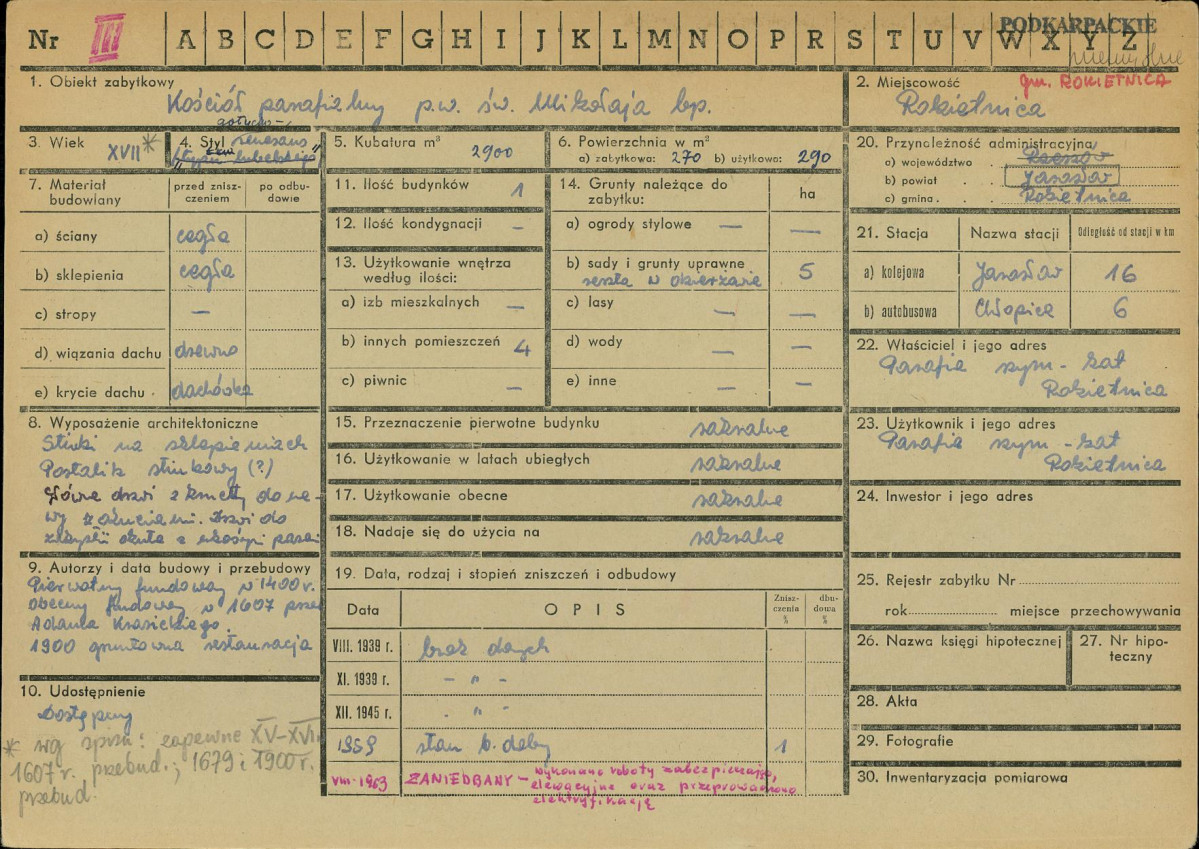 PODKARPACKIE
Nr III A B C D E F G H I J K L M N O P R S T U V W X Y Z
1. Obiekt zabytkowy
Kościół parafialny p.w. św. Mikołaja bp.
2. Miejscowość
gm. ROKIETNICA
Rokietnica
3. Wiek
XVII *
gotycko-
4. Styl renesans
"typu lubelskiego"
5. Kubatura m³
2900
6. Powierzchnia w m²
a) zabytkowa: 270 b) użytkowa: 290
7. Materiał budowiany
przed znisz-
czeniem
po odbu-
dowie
a) ściany cegła
b) sklepienia cegła
c) stropy —
d) wiązania dachu drewno
e) krycie dachu dachówka
8. Wyposażenie architektoniczne
Stiuki na sklepieniach
Portalik stiukowy (?)
Główne drzwi z kruchty do na-
wy z okuciami. Drzwi do
zakrystii okute z ukośnymi pasami
9. Autorzy i data budowy i przebudowy
Pierwotny fundowany w 1400 r.
Obecny fundowany w 1607 przez
Adama Krasickiego.
1900 gruntowna restauracja
10. Udostępnienie
Dostępny
* wg spraw: zapewne XV-XVI,
1607 r. przebud.; 1679 i 1900 r.
przebud.
11. Ilość budynków 1
12. Ilość kondygnacji —
13. Użytkowanie wnętrza
według ilości:
a) izb mieszkalnych —
b) innych pomieszczeń 4
c) piwnic —
14. Grunty należące do
zabytku:
ha
a) ogrody stylowe — —
b) sady i grunty uprawne
reszta w dzierżawie 5
c) lasy — —
d) wody — —
e) inne — —
15. Przeznaczenie pierwotne budynku sakralne
16. Użytkowanie w latach ubiegłych sakralne
17. Użytkowanie obecne sakralne
18. Nadaje się do użycia na sakralne
19. Data, rodzaj i stopień zniszczeń i odbudowy
Data OPIS Znisz-
czenia
% dbu-
dowa
%
VIII. 1939 r. brak danych
XI. 1939 r. - " -
XII. 1945 r. - " -
1959 stan b. dobry 1
VIII. 1963 ZANIEDBANY — wykonano roboty zabezpieczając,
elewacyjne oraz przeprowadzono
elektryfikację
20. Przynależność administracyjna
a) województwo . Rzeszów
b) powiat . . Jarosław
c) gmina . . Rokietnica
21. Stacja Nazwa stacji Odległość od stacji w km
a) kolejowa Jarosław 16
b) autobusowa Chłopice 6
22. Właściciel i jego adres
Parafia rzym-kat
Rokietnica
23. Użytkownik i jego adres
Parafia rzym-kat
Rokietnica
24. Inwestor i jego adres
25. Rejestr zabytku Nr
rok miejsce przechowywania
26. Nazwa księgi hipotecznej
27. Nr hipo-
teczny
28. Akta
29. Fotografie
30. Inwentaryzacja pomiarowa